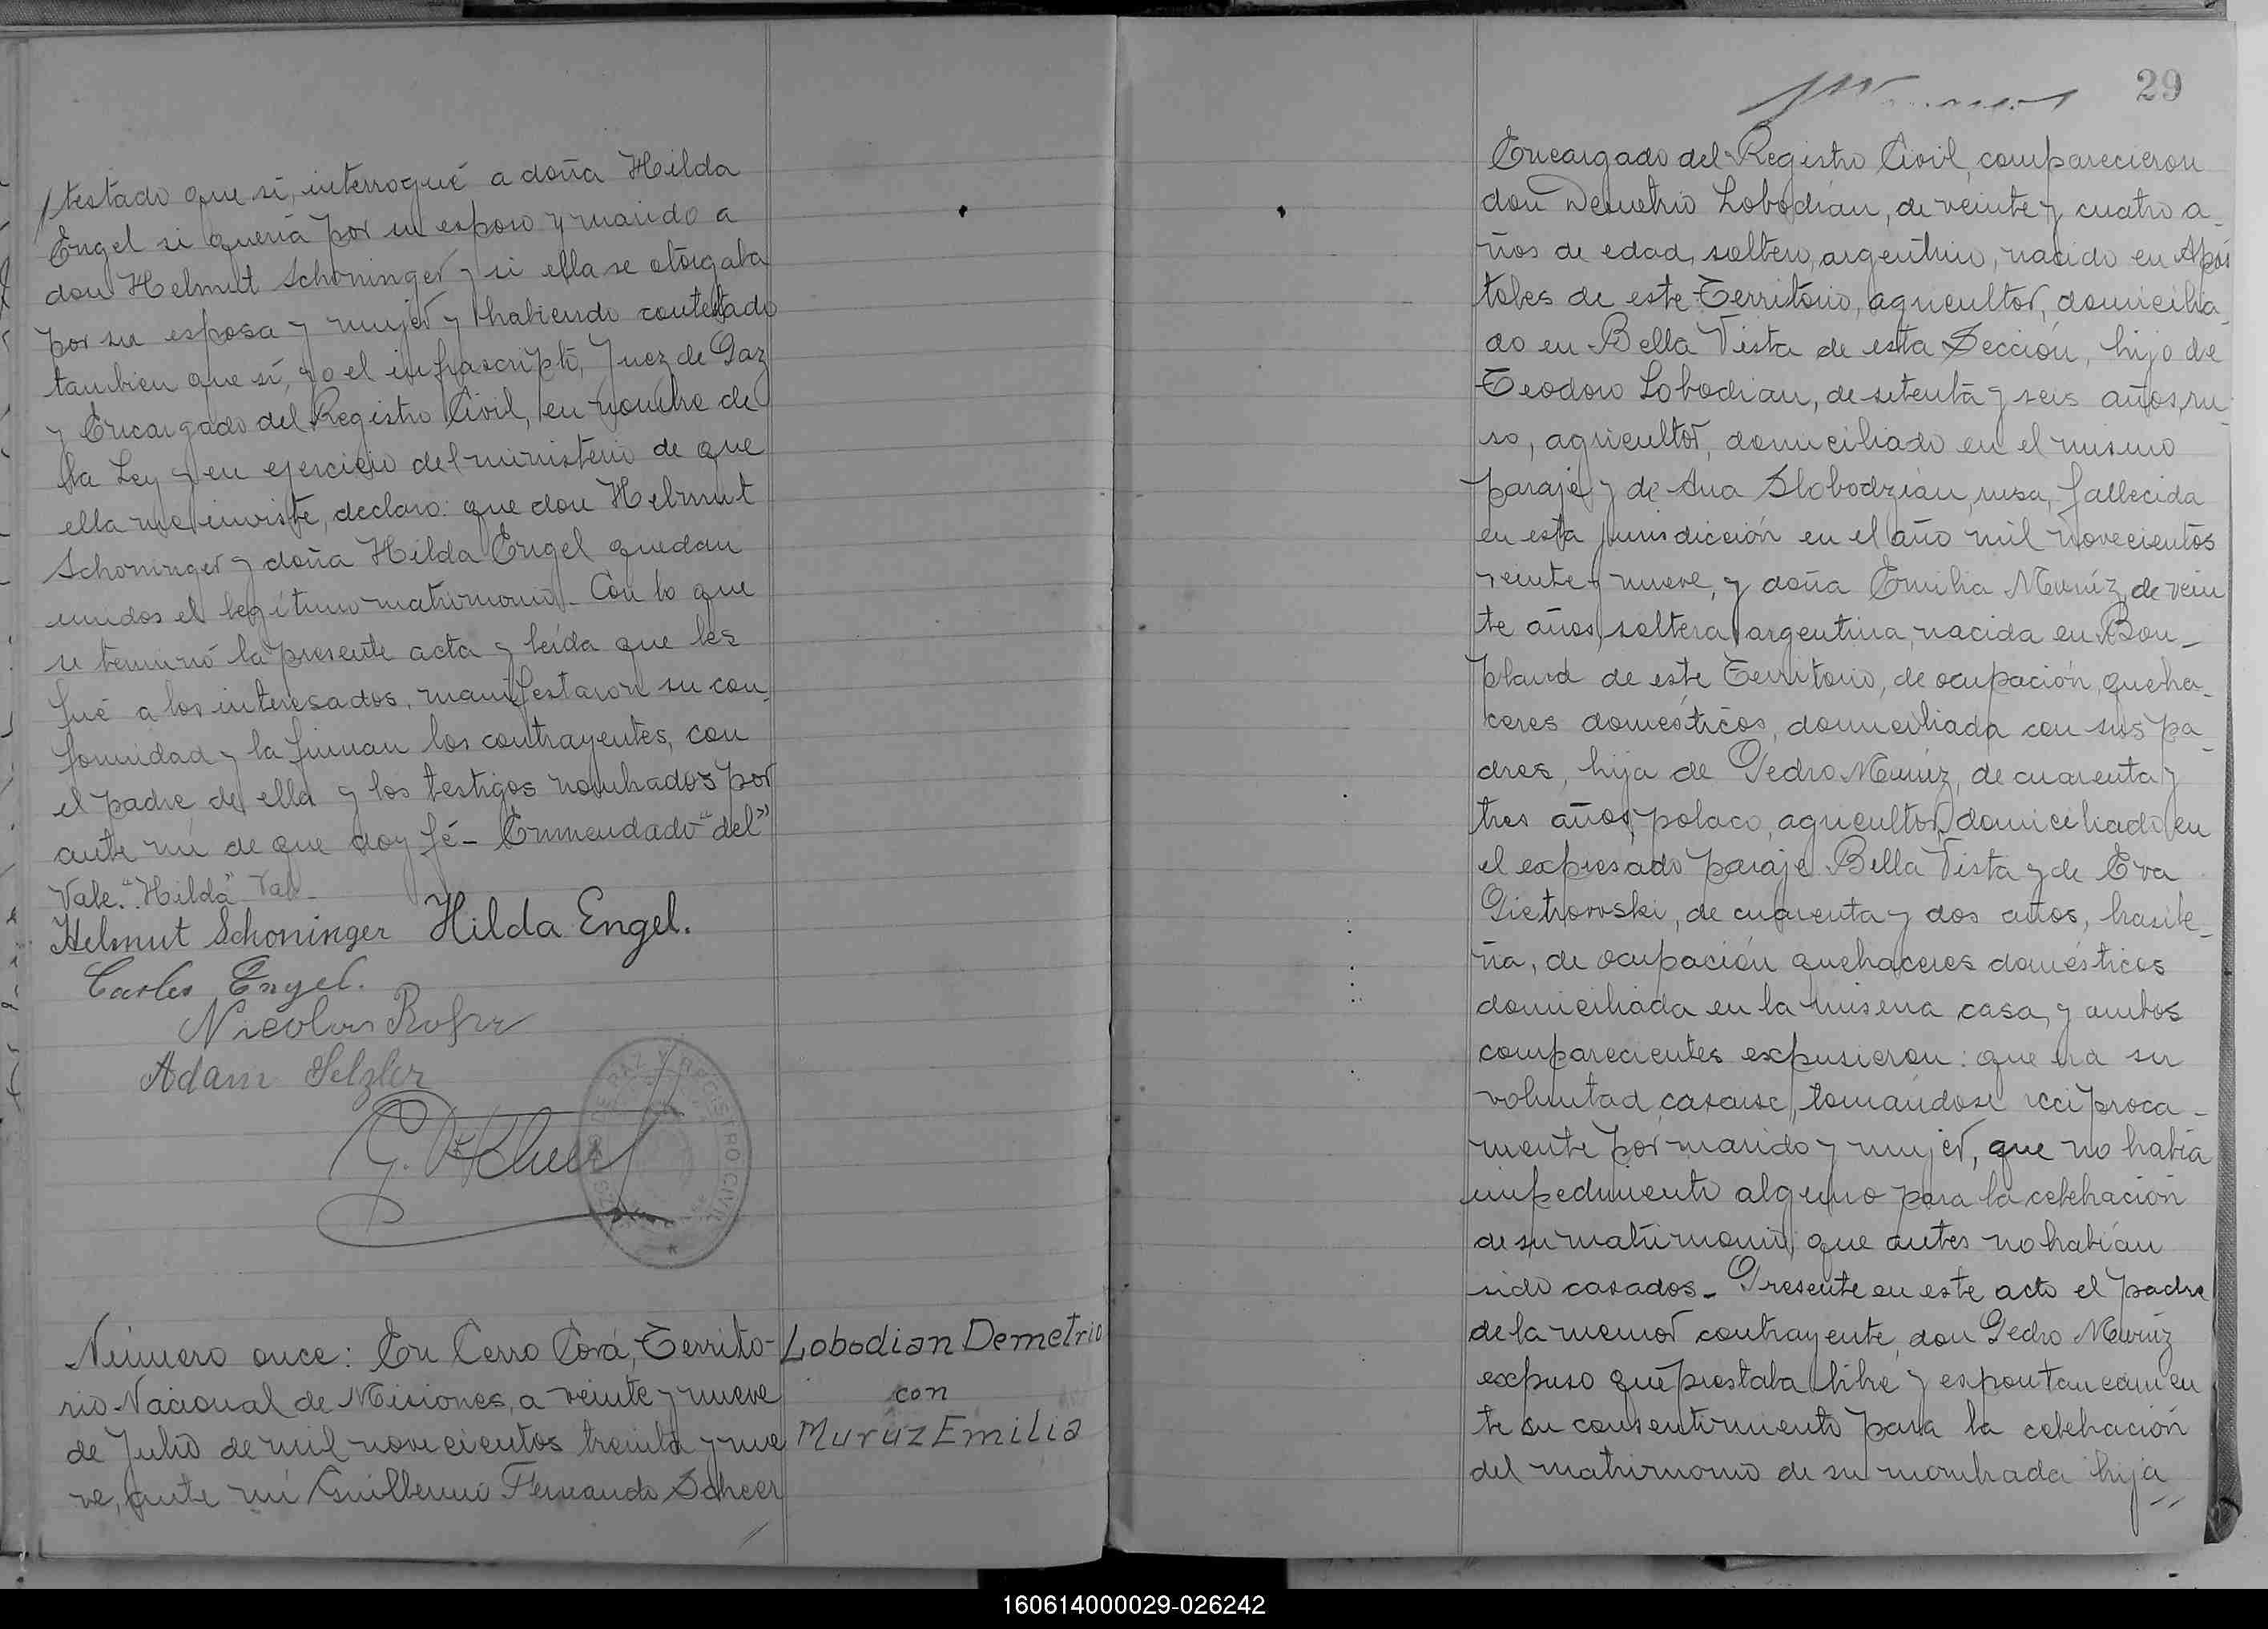 testado que sí, interrogué a doña Hilda
Engel si quería por su esposo y marido a
don Helmut Schoninger y si ella se otorgaba
por su esposa y mujer y habiendo contestado
tambien que sí, yo el infrascripto, Juez de Paz
y Encargado del Registro Civil, en nombre de
la Ley y en ejercicio del ministerio de que
ella me inviste, declaro: que don Helmut
Schoninger y doña Hilda Engel quedan
unidos el legítimo matrimonio. Con lo que
se terminó la presente acta y leída que les
fué a los interesados, manifestaron su con_
formidad y la firman los contrayentes, con
el padre de ella y los testigos nombrados por
ante mí de que doy fé_ Enmendado "del"
Vale. "Hilda" Vale_
Helmut Schoninger Hilda Engel.
Carlos Engel.
Nicolas
Adam Selzler
DE PAZ Y REGISTRO CIVIL
Número once: En Cerro Corá, Territo-
rio Nacional de Misiones, a veinte y nueve
de Julio de mil novecientos treinta y nue
ve, ante mí Guillermo Fernando Scheer
Lobodian Demetrio
con
Muruz Emilia
29
Encargado del Registro Civil, comparecieron
don Demetrio Lobodian, de veinte y cuatro a_
ños de edad, soltero, argentino, nacido en Após
toles de este Territorio, agricultor, domicilia_
do en Bella Vista de esta Sección, hijo de
Teodoro Lobodian, de setenta y seis años, ru_
so, agricultor, domiciliado en el mismo
paraje y de Ana Slobodzian, rusa, fallecida
en esta jurisdicción en el año mil novecientos
veinte y nueve, y doña Emilia Muruz, de vein
te años, soltera, argentina, nacida en Bon_
pland de este Territorio, de ocupación, queha_
ceres domésticos, domiciliada con sus pa_
dres, hija de Pedro Muruz, de cuarenta y
tres años, polaco, agricultor, domiciliado en
el expresado paraje Bella Vista y de Eva
Pietrowski, de cuarenta y dos años, brasile_
ña, de ocupación quehaceres domésticos
domiciliada en la misma casa, y ambos
comparecientes expusieron: que era su
voluntad casarse, tomándose recíproca_
mente por marido y mujer, que no había
impedimento alguno para la celebración
de su matrimonio, que antes no habían
sido casados_ Presente en este acto el padre
de la menor contrayente, don Pedro Muruz
expuso que prestaba libre y espontaneamen
te su consentimiento para la celebración
del matrimonio de su nombrada hija
160614000029-026242